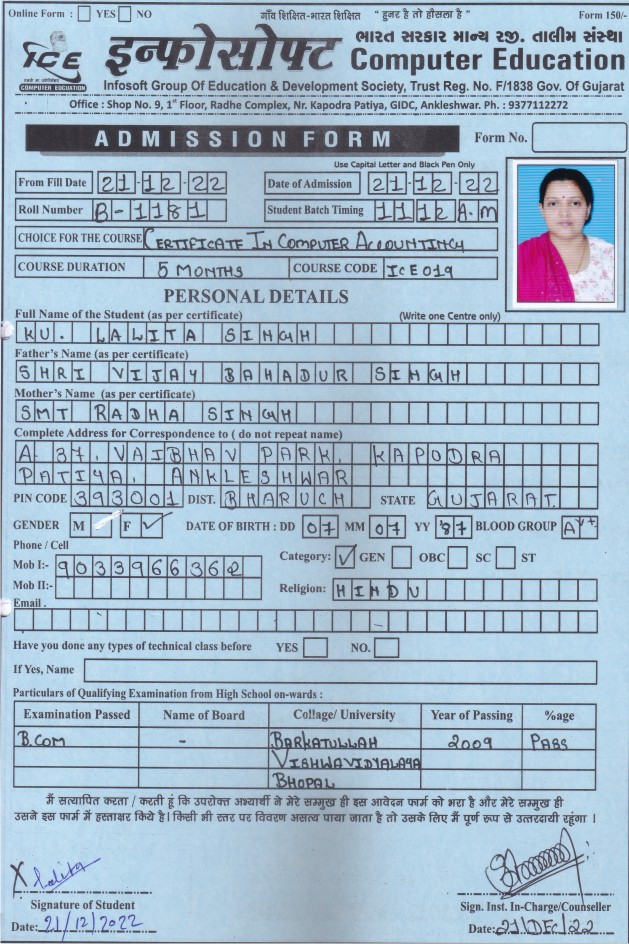 Online Form : YES NO गाँव शिक्षित-भारत शिक्षित " हुनर है तो हौसला है " Form 150/-
ICE इन्फोसोफ्ट भारत सरकार मान्य रजी. तालीम संस्था
COMPUTER EDUCATION Computer Education
Infosoft Group Of Education & Development Society, Trust Reg. No. F/1838 Gov. Of Gujarat
Office : Shop No. 9, 1st Floor, Radhe Complex, Nr. Kapodra Patiya, GIDC, Ankleshwar. Ph. : 9377112272
ADMISSION FORM Form No.
Use Capital Letter and Black Pen Only
From Fill Date 21-12-22 Date of Admission 21-12-22
Roll Number B-1181 Student Batch Timing 1112 A.M
CHOICE FOR THE COURSE CERTIFICATE IN COMPUTER ACCOUNTING
COURSE DURATION 5 MONTHS COURSE CODE ICE019
PERSONAL DETAILS
Full Name of the Student (as per certificate) (Write one Centre only)
KU. LALITA SINGH
Father's Name (as per certificate)
SHRI VIJAY BAHADUR SINGH
Mother's Name (as per certificate)
SMT RADHA SINGH
Complete Address for Correspondence to ( do not repeat name)
A 37, VAIBHAV PARK, KAPODRA
PATIYA, ANKLESHWAR
PIN CODE 393001 DIST. BHARUCH STATE GUJARAT.
GENDER M F ✓ DATE OF BIRTH : DD 07 MM 07 YY '87 BLOOD GROUP A+
Phone / Cell Category: ✓ GEN OBC SC ST
Mob I:- 9033966362
Mob II:- Religion: HINDU
Email .
Have you done any types of technical class before YES NO.
If Yes, Name
Particulars of Qualifying Examination from High School on-wards :
Examination Passed Name of Board Collage/ University Year of Passing %age
B.COM - BARKATULLAH 2009 PASS
VISHWAVIDYALAYA
BHOPAL
मैं सत्यापित करता / करती हूं कि उपरोक्त अभ्यार्थी ने मेरे सम्मुख ही इस आवेदन फार्म को भरा है और मेरे सम्मुख ही
उसने इस फार्म में हस्ताक्षर किये है। किसी भी स्तर पर विवरण असत्य पाया जाता है तो उसके लिए मैं पूर्ण रूप से उत्तरदायी रहूंगा ।
X Lalita
Signature of Student Sign. Inst. In-Charge/Counseller
Date: 21/12/2022 Date: 21/DEC/22